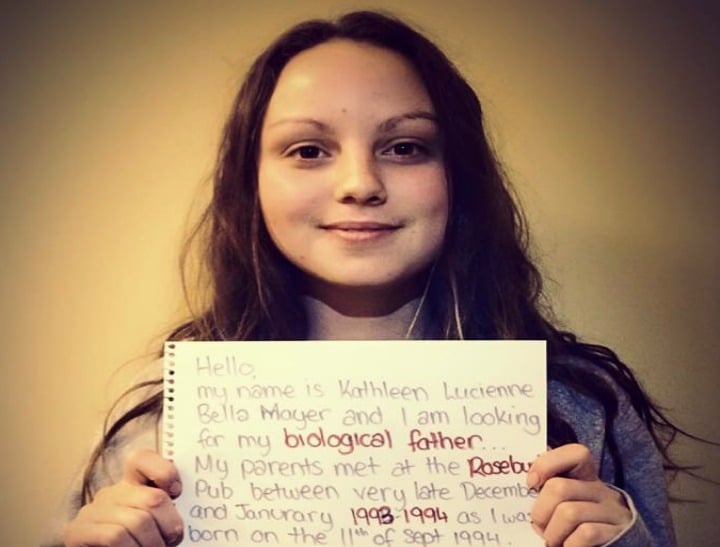 Hello,
my name is Kathleen Lucienne
Bella Mayer and I am looking
for my biological father...
My parents met at the Rosebu
Pub between very late Decembe
and Janurary 1993-1994 as I was
born on the 11th of Sept 1994.